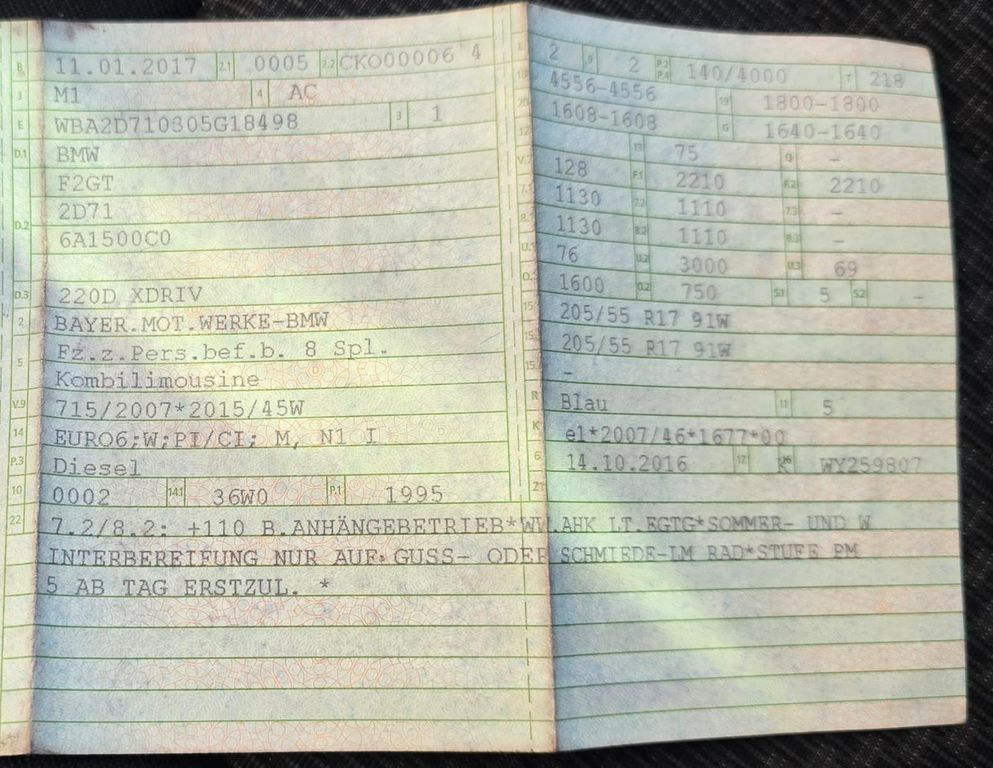 B 11.01.2017 2.1 0005 2.2 CKO00006 4
J M1 4 AC
E WBA2D710305G18498 3 1
D.1 BMW
F2GT
D.2 2D71
6A1500C0
D.3 220D XDRIV
2 BAYER.MOT.WERKE-BMW
Fz.z.Pers.bef.b. 8 Spl.
5 Kombilimousine
V.9 715/2007*2015/45W
14 EURO6;W;PI/CI; M, N1 I
P.3 Diesel
10 0002 14.1 36W0 P.1 1995
L 2 9 2 P.2 P.4 140/4000 T 218
18 4556-4556 19 1800-1800
20 1608-1608 G 1640-1640
12 13 75 Q -
V.7 128 F.1 2210 F.2 2210
7.1 1130 7.2 1110 7.3 -
8.1 1130 8.2 1110 8.3 -
U.1 76 U.2 3000 U.3 69
O.1 1600 O.2 750 S.1 5 S.2 -
15.1 205/55 R17 91W
15.2 205/55 R17 91W
15.3 -
R Blau 11 5
K e1*2007/46*1677*00
6 14.10.2016 17 K 16 WY259807
21
22 7.2/8.2: +110 B.ANHÄNGEBETRIEB*WW.AHK LT.EGTG*SOMMER- UND W
INTERBEREIFUNG NUR AUF GUSS- ODER SCHMIEDE-LM RAD*STUFE PM
5 AB TAG ERSTZUL. *